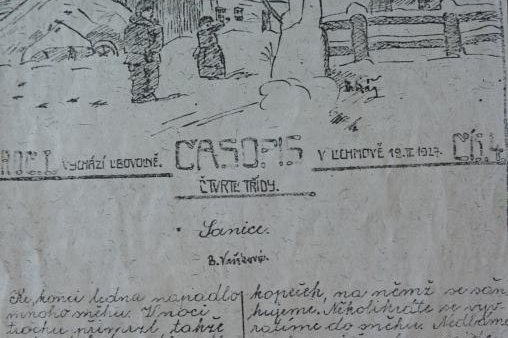 ROČ. I. VYCHÁZÍ LIBOVOLNĚ. ČASOPIS V LICHNOVĚ 19.II.1927. ČÍS. 4
ČTVRTÉ TŘÍDY.
Sanice.
Ke konci ledna napadlo
mnoho sněhu. V noci
trochu přimrzl, takže
kopeček, na němž se sán-
kujeme. Několikráte se vyv-
rátíme do sněhu. Nedbáme